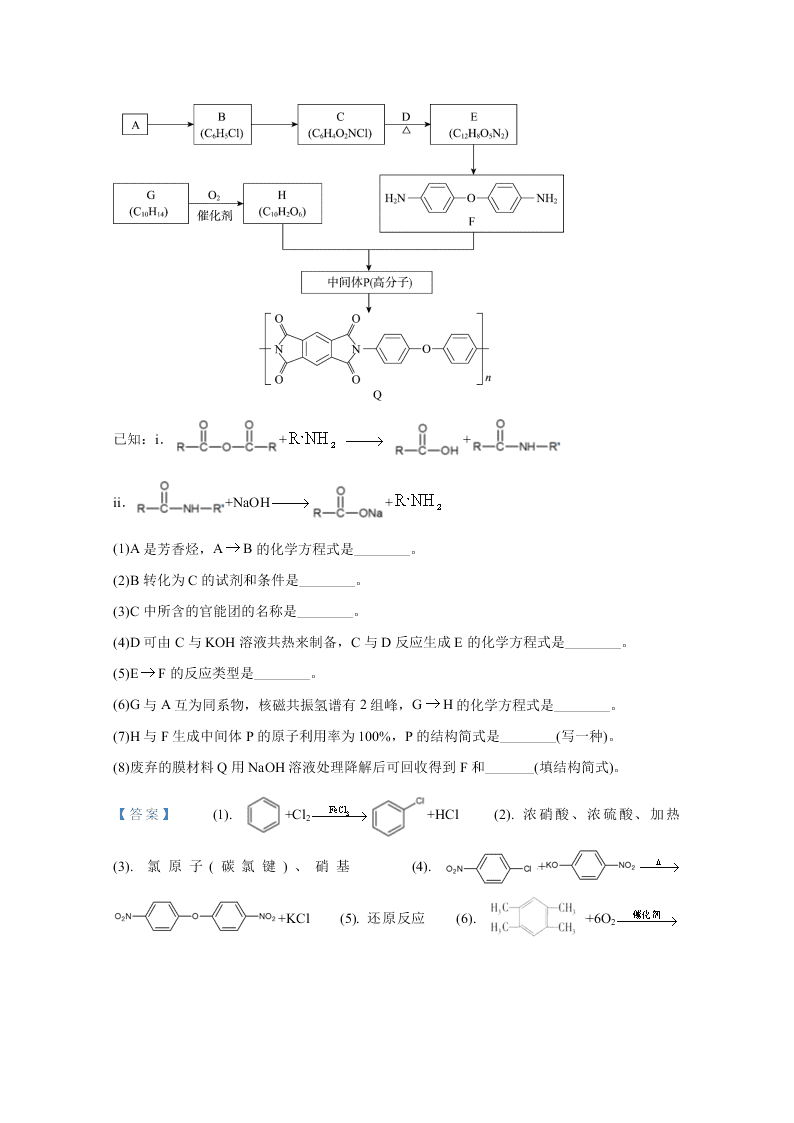 A B (C₆H₅Cl) C (C₆H₄O₂NCl) D △ E (C₁₂H₈O₅N₂)
G (C₁₀H₁₄) O₂ 催化剂 H (C₁₀H₂O₆) H₂N O NH₂ F
中间体P(高分子)
O O
N N O
O O n
Q
已知：i. R—C(=O)—O—C(=O)—R + R·NH₂ → R—C(=O)—OH + R—C(=O)—NH—R'
ii. R—C(=O)—NH—R'+NaOH → R—C(=O)—ONa + R·NH₂
(1)A 是芳香烃，A→B 的化学方程式是________。
(2)B 转化为 C 的试剂和条件是________。
(3)C 中所含的官能团的名称是________。
(4)D 可由 C 与 KOH 溶液共热来制备，C 与 D 反应生成 E 的化学方程式是________。
(5)E→F 的反应类型是________。
(6)G 与 A 互为同系物，核磁共振氢谱有 2 组峰，G→H 的化学方程式是________。
(7)H 与 F 生成中间体 P 的原子利用率为 100%，P 的结构简式是________(写一种)。
(8)废弃的膜材料 Q 用 NaOH 溶液处理降解后可回收得到 F 和_______(填结构简式)。
【答案】 (1). +Cl₂ FeCl₃ → Cl +HCl (2). 浓硝酸、浓硫酸、加热
(3). 氯原子(碳氯键)、硝基 (4). O₂N Cl +KO NO₂ △ →
O₂N O NO₂ +KCl (5). 还原反应 (6). H₃C CH₃ H₃C CH₃ +6O₂ 催化剂 →